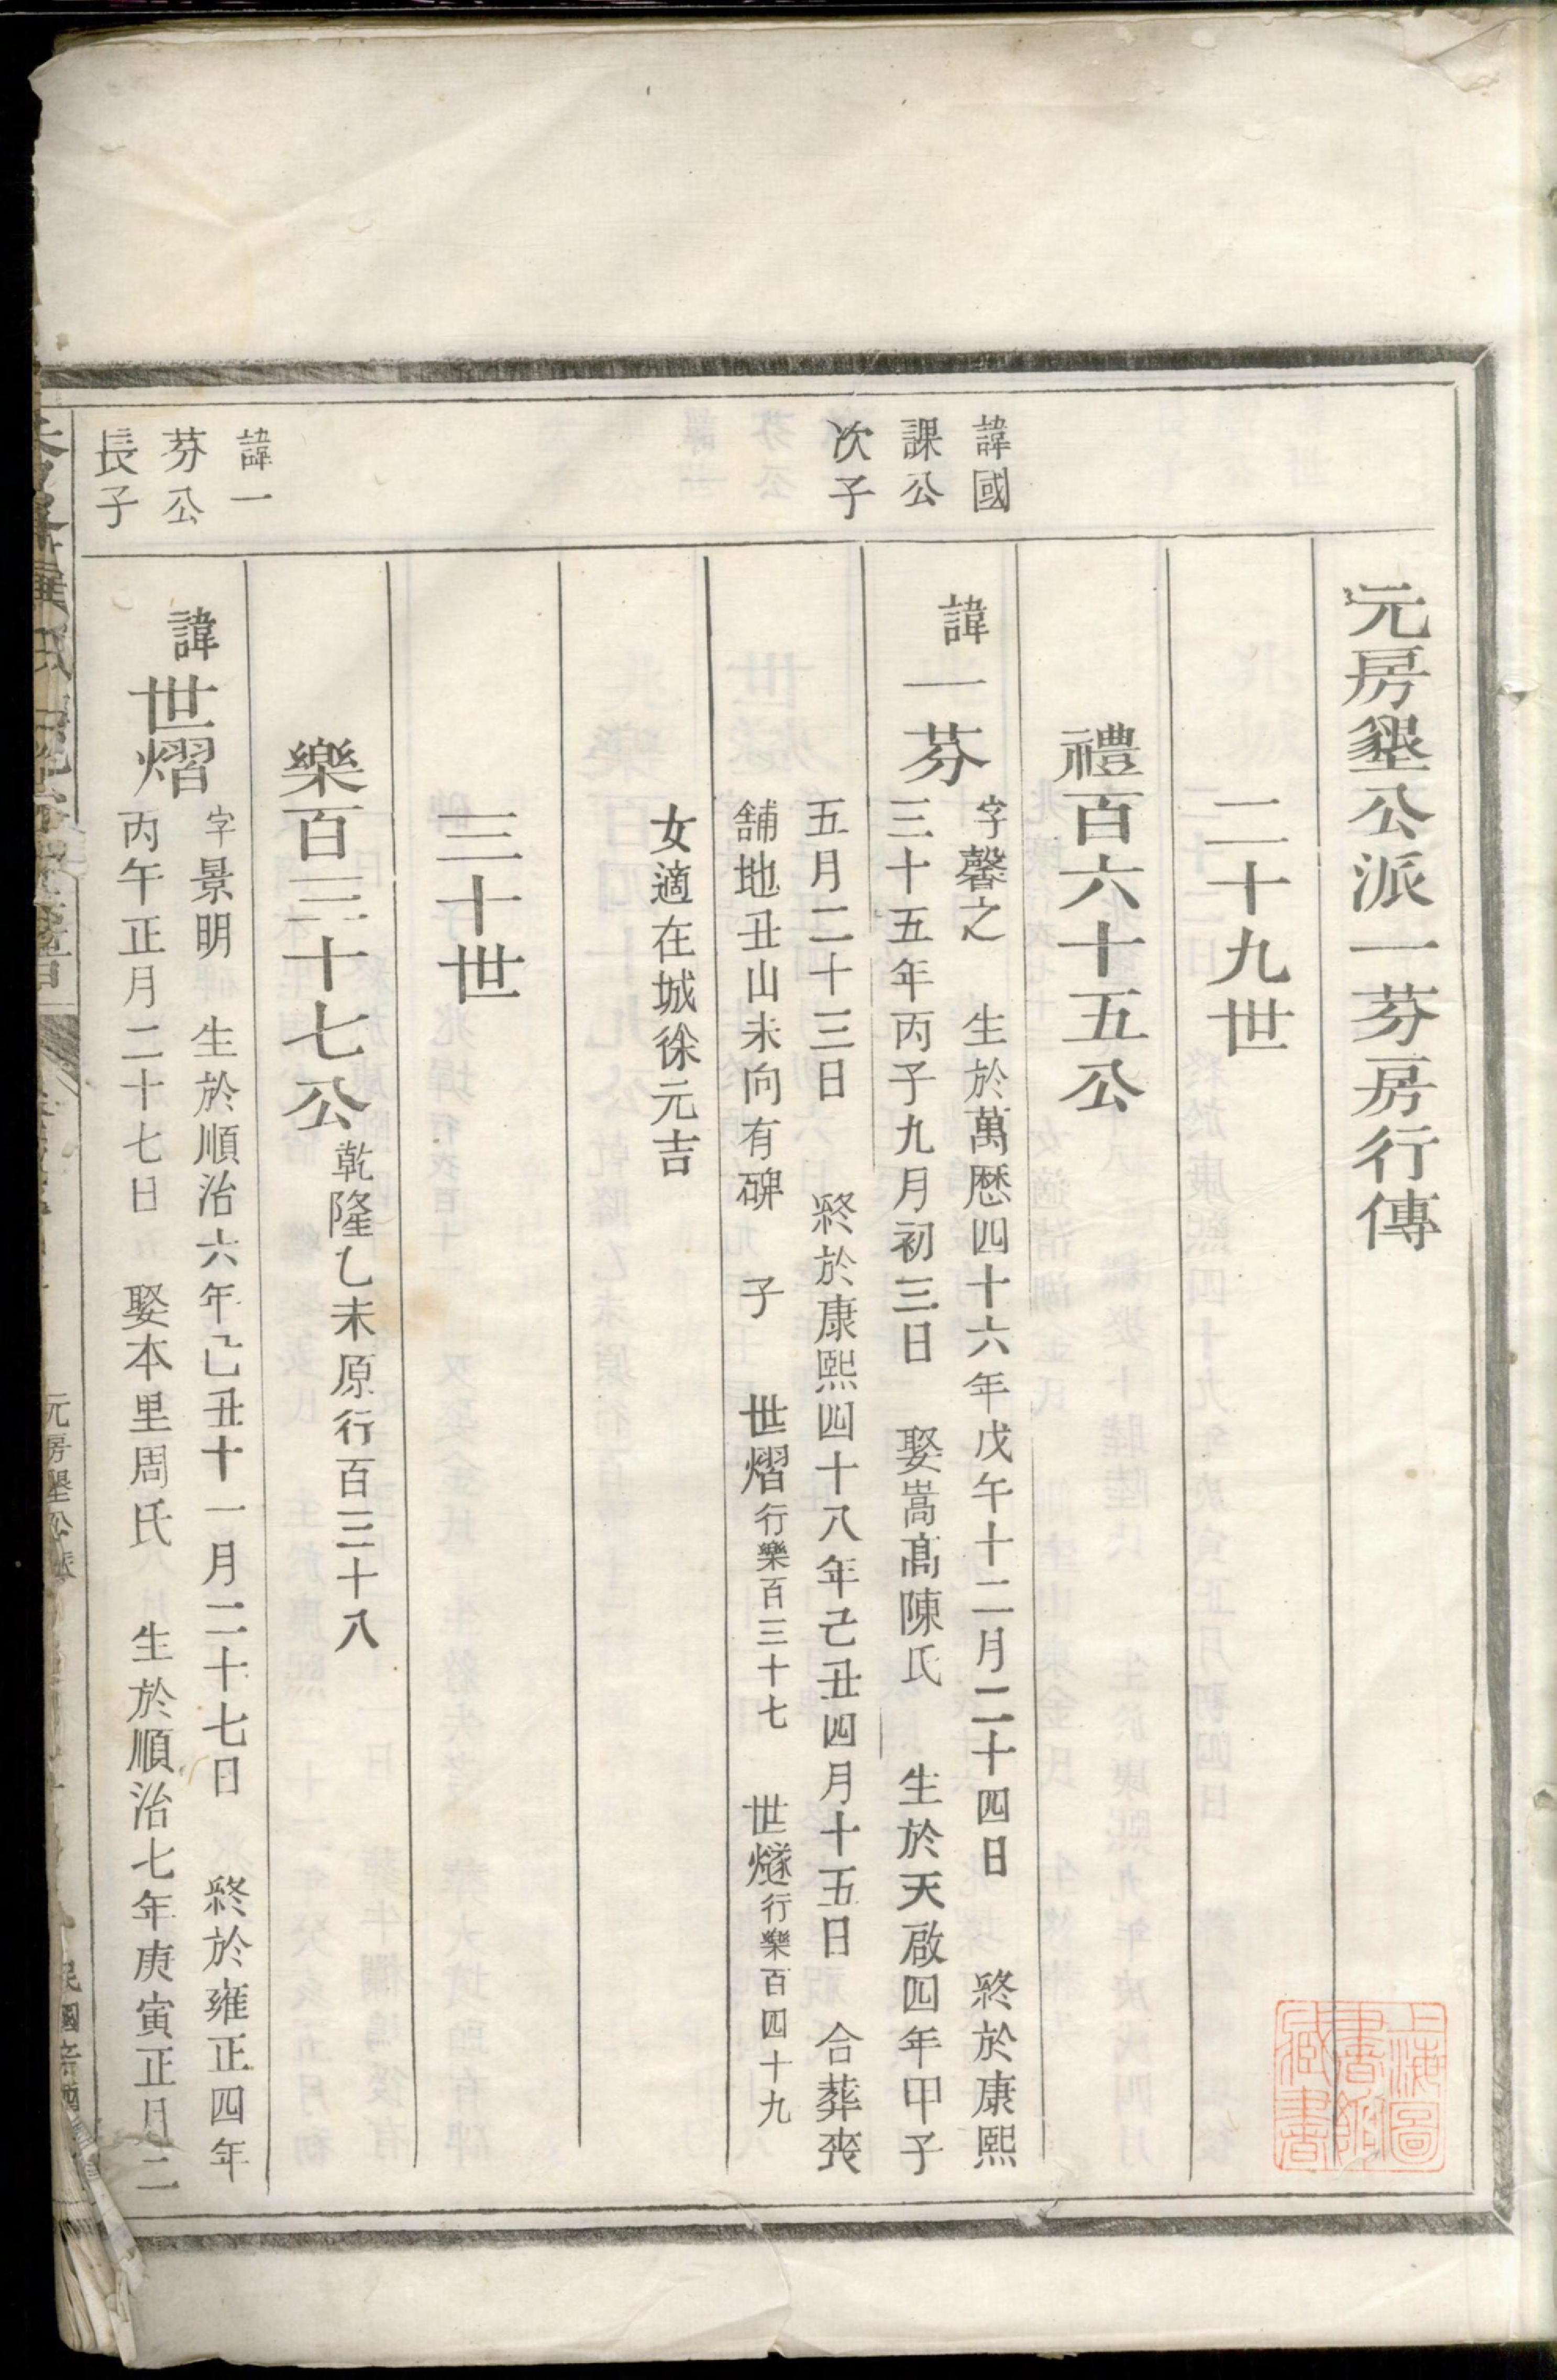 元房墾公派一芬房行傳
二十九世
禮百六十五公
諱國
課公
次子
諱一芬
字馨之 生於萬歷四十六年戊午十二月二十四日 終於康熙
三十五年丙子九月初三日 娶嵩高陳氏 生於天啟四年甲子
五月二十三日 終於康熙四十八年己丑四月十五日 合葬喪
舖地丑山未向有碑 子 世熠行樂百三十七 世燧行樂百四十九
女適在城徐元吉
三十世
樂百三十七公乾隆乙未原行百三十八
諱一
芬公
長子
諱世熠
字景明 生於順治六年己丑十一月二十七日 終於雍正四年
丙午正月二十七日 娶本里周氏 生於順治七年庚寅正月二
元房墾公派
上海圖
書館
藏書